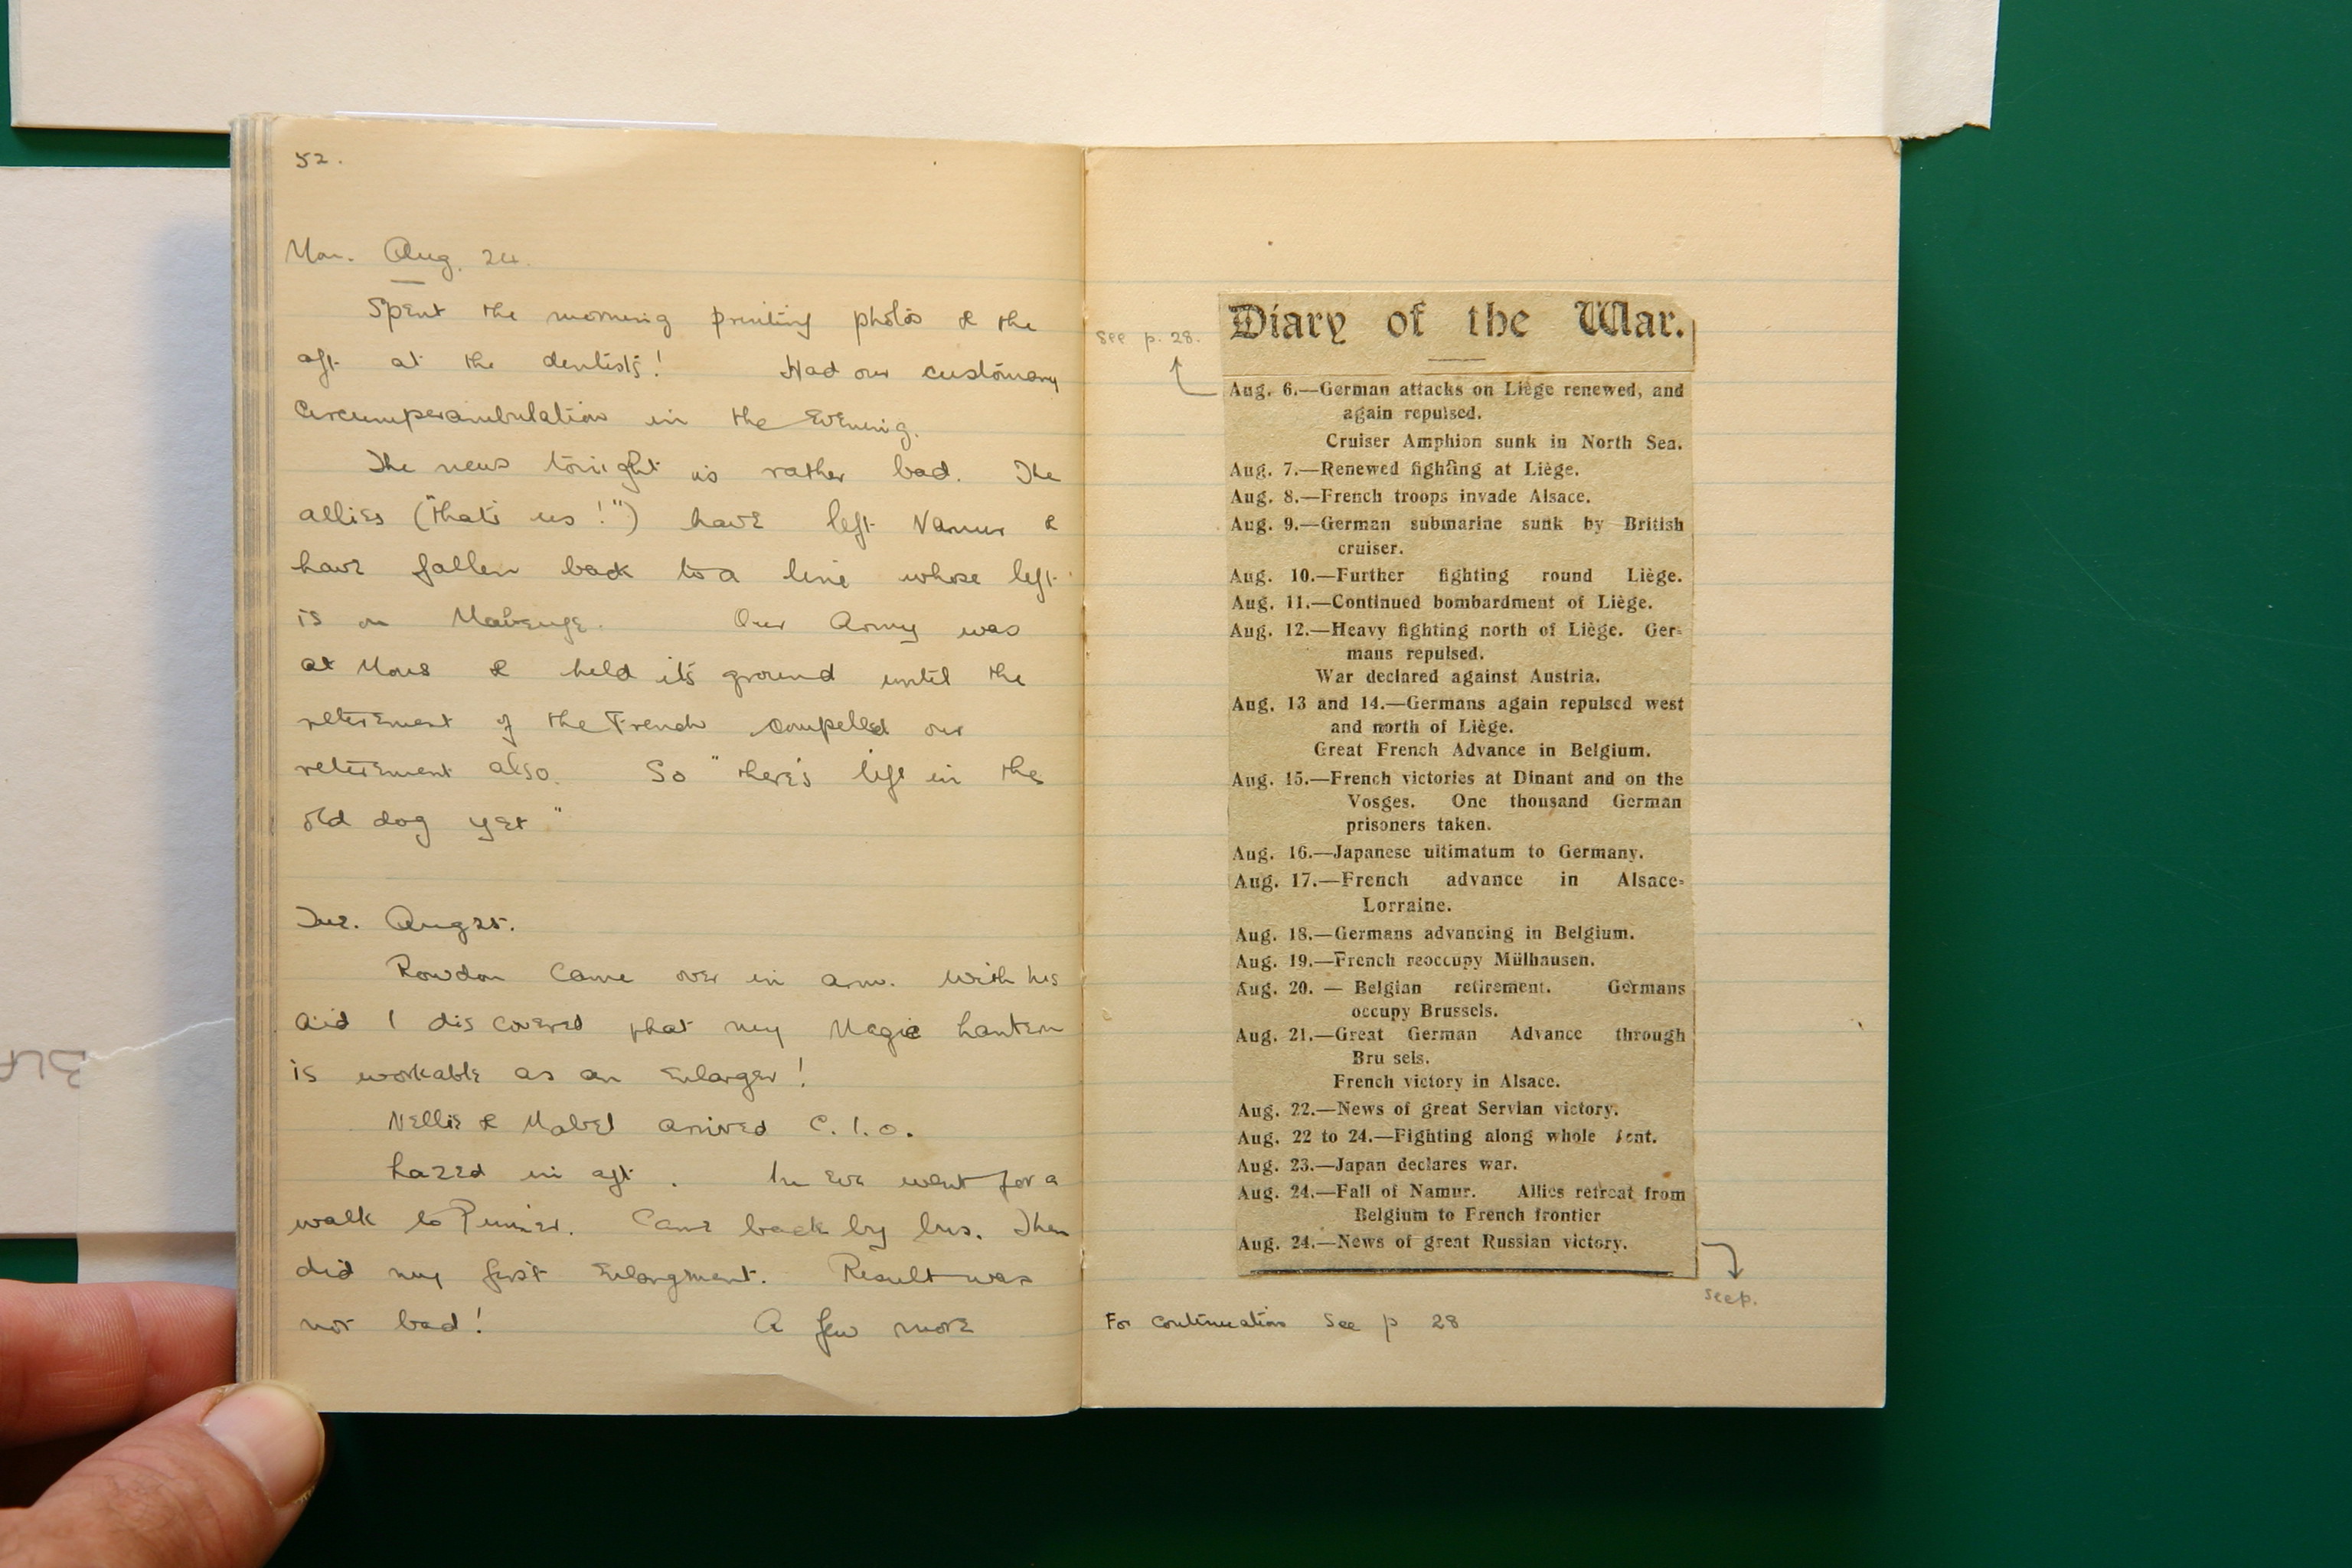 52.
Mon. Aug. 24.
Spent the morning printing photos & the
aft. at the dentists! Had our customary
Circumperambulation in the Evening.
The news tonight is rather bad. The
allies ("that's us!") have left Namur &
have fallen back to a line whose left
is on Mabeuge. Our Army was
at Mons & held its ground until the
retirement of the French compelled our
retirement also. So "there's life in the
old dog yet"
Tue. Aug 25.
Rowdon came over in am. With his
aid I discovered that my Magic Lantern
is workable as an Enlarger!
Nellie & Mabel arrived C.I.O.
Lazed in aft. In Eve went for a
walk to Pinner. Came back by bus. Then
did my first Enlargment. Result was
not bad! A few more
Diary of the War.
see p. 28.
Aug. 6.—German attacks on Liège renewed, and
again repulsed.
Cruiser Amphion sunk in North Sea.
Aug. 7.—Renewed fighting at Liège.
Aug. 8.—French troops invade Alsace.
Aug. 9.—German submarine sunk by British
cruiser.
Aug. 10.—Further fighting round Liège.
Aug. 11.—Continued bombardment of Liège.
Aug. 12.—Heavy fighting north of Liège. Ger-
mans repulsed.
War declared against Austria.
Aug. 13 and 14.—Germans again repulsed west
and north of Liège.
Great French Advance in Belgium.
Aug. 15.—French victories at Dinant and on the
Vosges. One thousand German
prisoners taken.
Aug. 16.—Japanese ultimatum to Germany.
Aug. 17.—French advance in Alsace-
Lorraine.
Aug. 18.—Germans advancing in Belgium.
Aug. 19.—French reoccupy Mülhausen.
Aug. 20. — Belgian retirement. Germans
occupy Brussels.
Aug. 21.—Great German Advance through
Bru sels.
French victory in Alsace.
Aug. 22.—News of great Servian victory.
Aug. 22 to 24.—Fighting along whole
Aug. 23.—Japan declares war.
Aug. 24.—Fall of Namur. Allies retreat from
Belgium to French frontier
Aug. 24.—News of great Russian victory.
see p.
For continuation See p 28